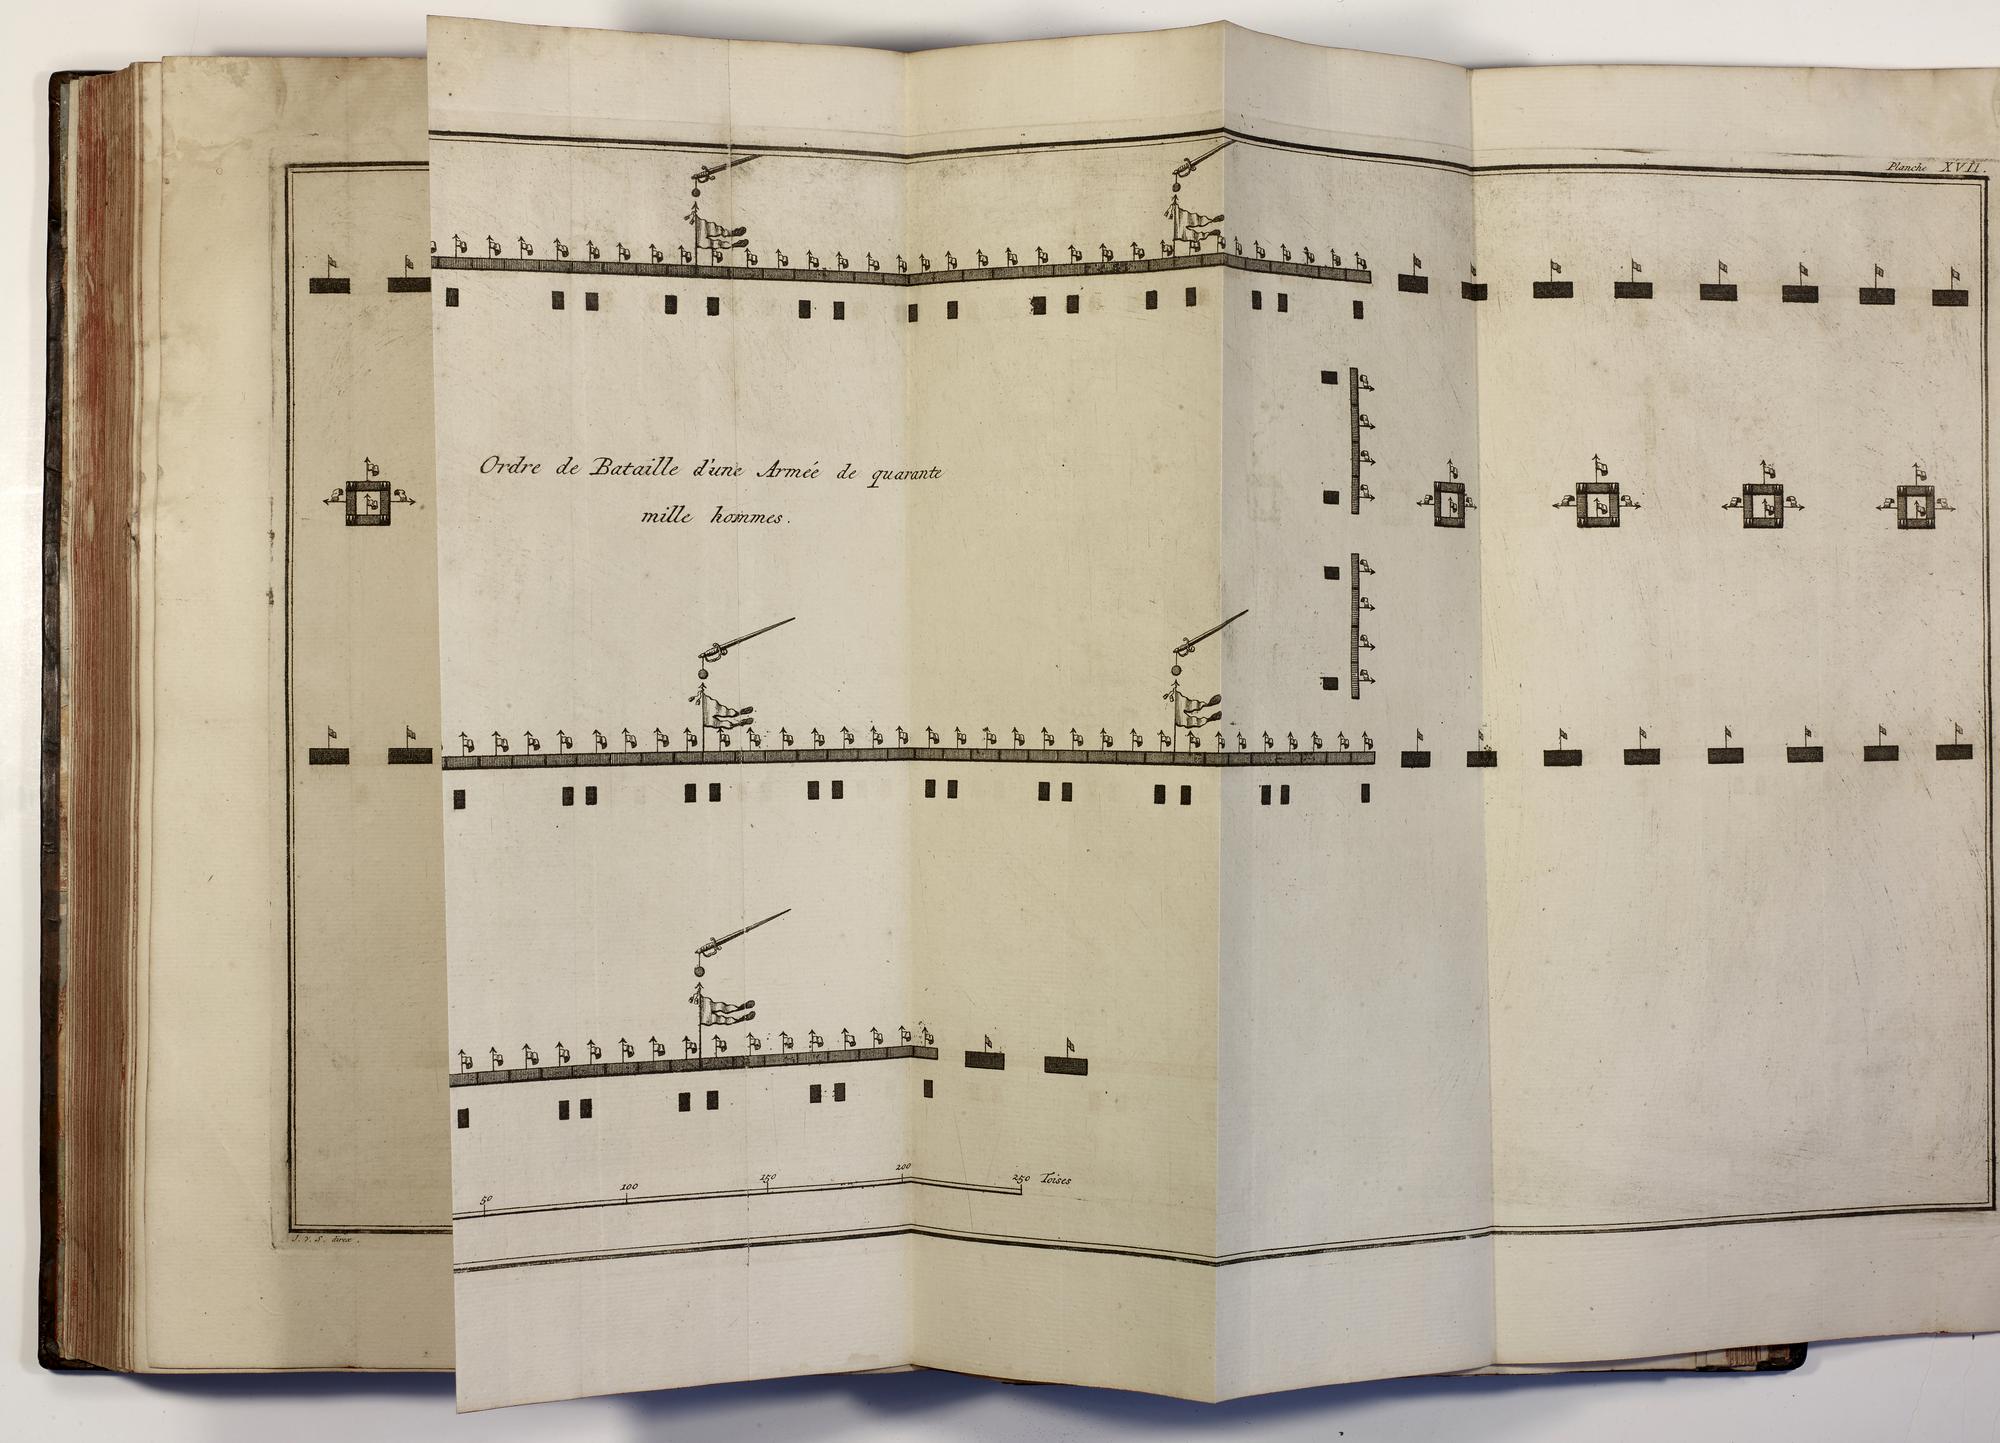 Planche XVII.
Ordre de Bataille d'une Armée de quarante
mille hommes.
50 100 150 200 250 Toises
J. V. S. direx.